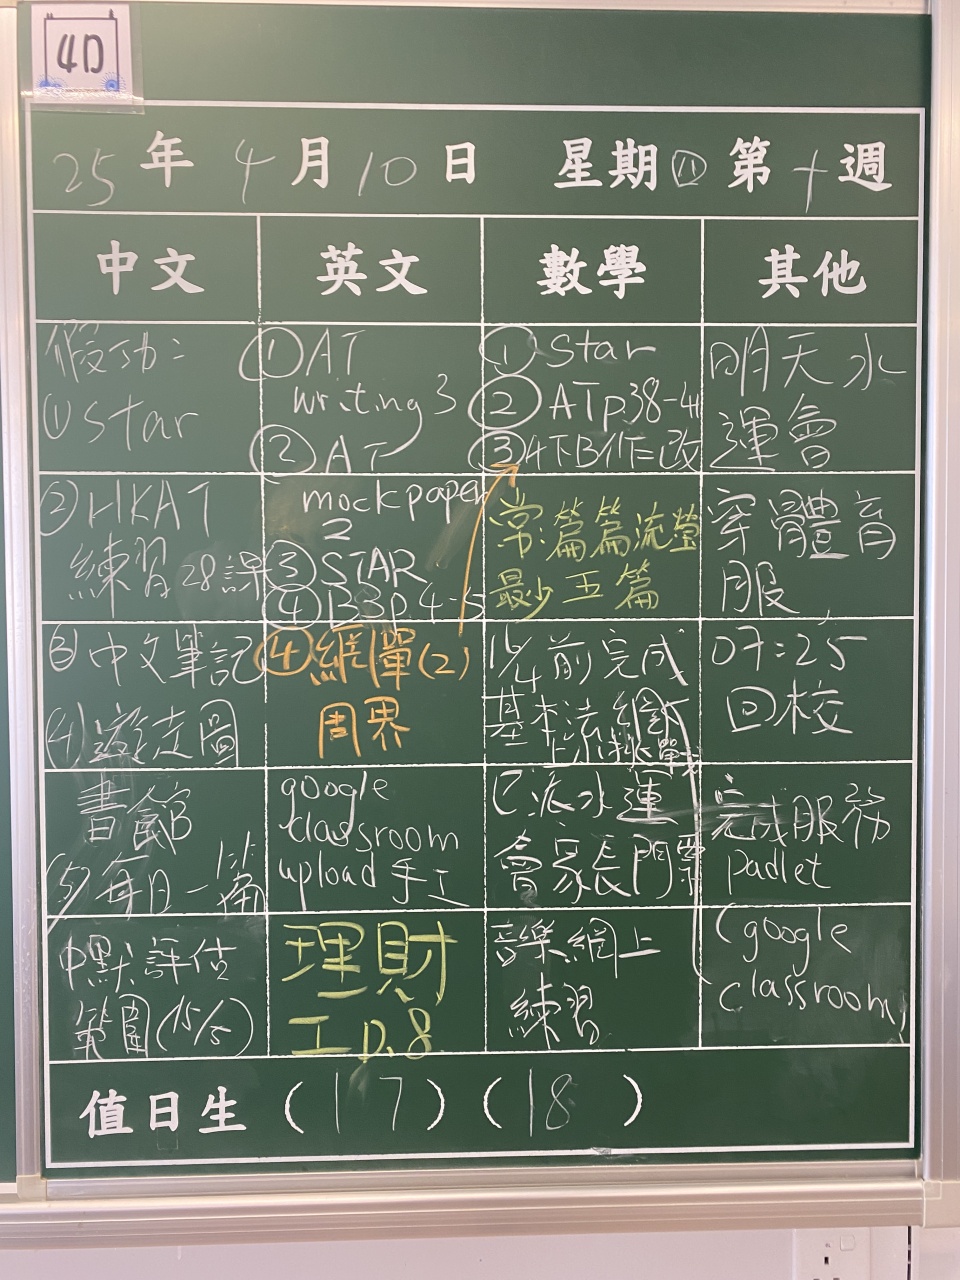 4D
25年4月10日 星期四第十週
中文 英文 數學 其他
假功:
①Star
②HKAT
練習28課
③中文筆記
(4)遊走圖
書館
(5)每日一篇
中默評估
範圍(15/5)
①AT
writing 3
②AT
mock paper
2
③STAR
④B3p.4-5
④網單(2)
周界
google
classroom
upload手工
理財
工p.8
①Star
②ATp.38-41
③4下B作=改
常:篇篇流螢
最少五篇
16/4前完成
基本法網
上
已派水運
會家長門票
音樂網上
練習
明天水
運會
穿體育
服
07:25
回校
完成服務
padlet
(google
classroom)
值日生(17)(18)